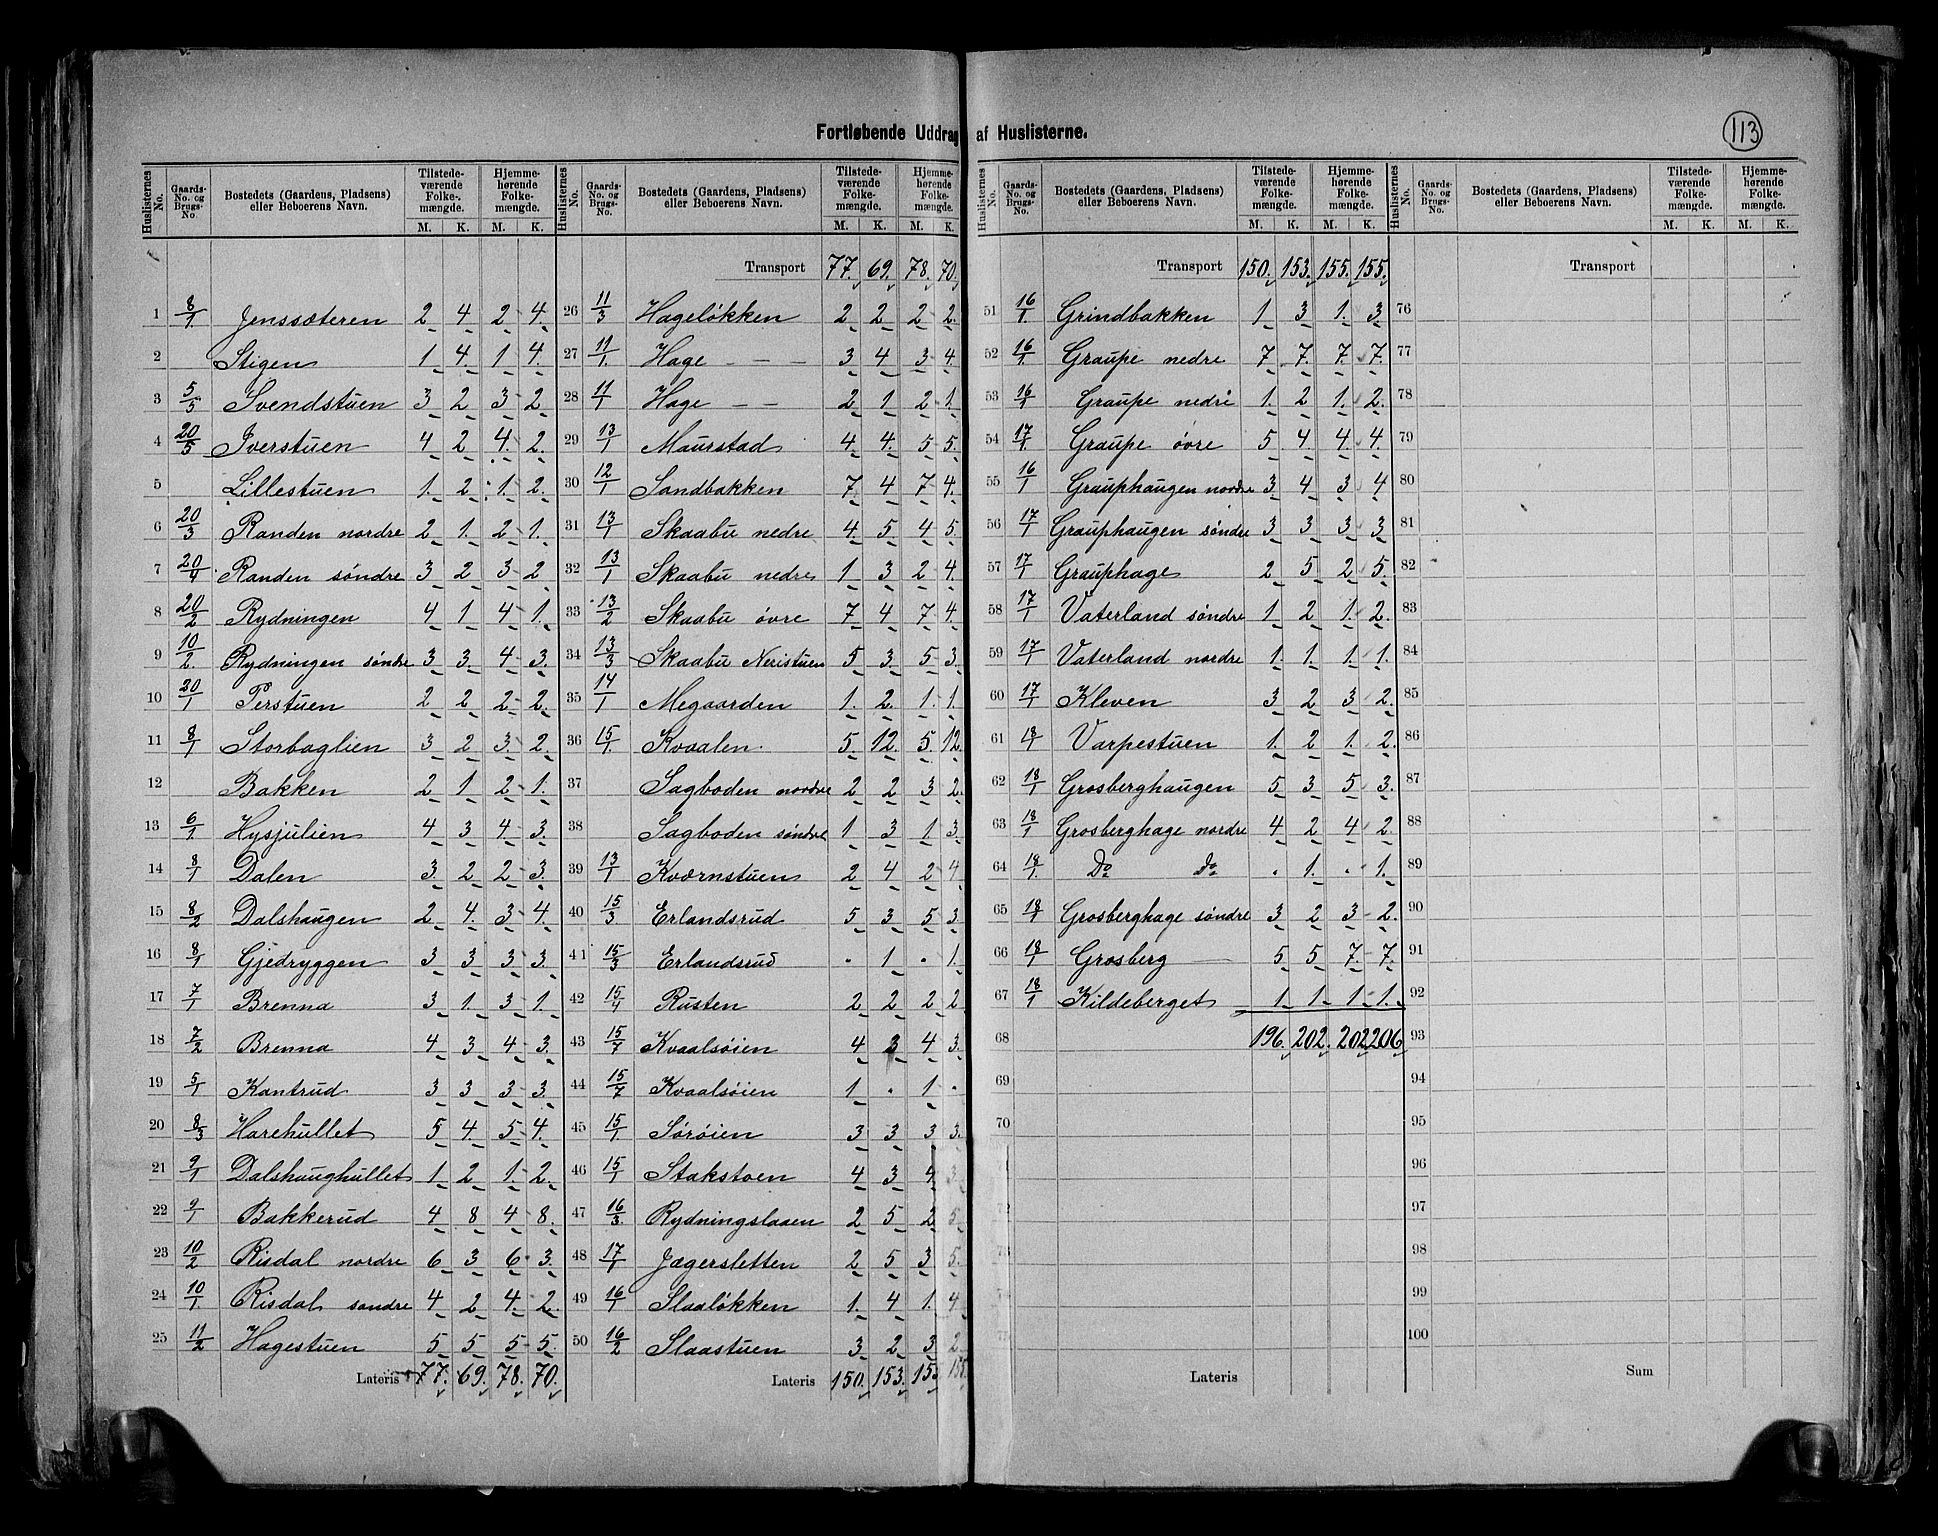 Fortløbende Uddrag af Huslisterne.
113
Huslisternes No. | Gaards-No. og Brugs-No. | Bostedets (Gaardens, Pladsens) eller Beboerens Navn. | Tilstedeværende Folkemængde. M. K. | Hjemmehørende Folkemængde. M. K.
1 8/1 Jenssæteren 2 4 2 4
2 Stigen 1 4 1 4
3 5/5 Svendstuen 3 2 3 2
4 20/5 Iverstuen 4 2 4 2
5 Lillestuen 1 2 1 2
6 20/3 Randen nordre 2 1 2 1
7 20/4 Randen søndre 3 2 3 2
8 20/2 Rydningen 4 1 4 1
9 10/2 Rydningen søndre 3 3 4 3
10 20/1 Perstuen 2 2 2 2
11 8/1 Storbaglien 3 2 3 2
12 Bakken 2 1 2 1
13 6/1 Hysjulien 4 3 4 3
14 8/1 Dalen 3 2 2 3
15 8/2 Dalshaugen 2 4 3 4
16 8/1 Gjedryggen 3 3 3 3
17 7/1 Brenna 3 1 3 1
18 7/2 Brenna 4 3 4 3
19 5/1 Kantrud 3 3 3 3
20 8/3 Harehullet 5 4 5 4
21 9/1 Dalshaughullet 1 2 1 2
22 9/1 Bakkerud 4 8 4 8
23 10/2 Risdal nordre 6 3 6 3
24 10/1 Risdal søndre 4 2 4 2
25 11/2 Hagestuen 5 5 5 5
Lateris 77. 69. 78. 70.
Huslisternes No. | Gaards-No. og Brugs-No. | Bostedets (Gaardens, Pladsens) eller Beboerens Navn. | Tilstedeværende Folkemængde. M. K. | Hjemmehørende Folkemængde. M. K.
Transport 77. 69. 78. 70.
26 11/3 Hageløkken 2 2 2 2
27 11/1 Hage — — 3 4 3 4
28 11/1 Hage — — 2 1 2 1
29 13/1 Maurstad 4 4 5 5
30 12/1 Sandbakken 7 4 7 4
31 13/1 Skaabu nedre 4 5 4 5
32 13/1 Skaabu nedre 1 3 2 4
33 13/2 Skaabu øvre 7 4 7 4
34 13/3 Skaabu Neristuen 5 3 5 3
35 14/1 Megaarden 1 2 1 1
36 15/1 Kvaalen 5 12 5 12
37 Sagboden nordre 2 2 3 2
38 Sagboden søndre 1 3 1 3
39 13/1 Kværnstuen 2 4 2 4
40 15/3 Erlandsrud 5 3 5 3
41 15/3 Erlandsrud · 1 · 1
42 15/4 Rusten 2 2 2 2
43 15/7 Kvaalsøien 4 3 4 3
44 15/7 Kvaalsøien 1 · 1 ·
45 15/1 Sørøien 3 3 3 3
46 15/1 Stakstoen 4 3 4 3
47 16/3 Rydningslaaen 2 5 2 5
48 17/1 Jægersletten 2 5 3 5
49 16/1 Slaaløkken 1 4 1 4
50 16/2 Slaastuen 3 2 3 2
Lateris 150. 153. 155 155.
Huslisternes No. | Gaards-No. og Brugs-No. | Bostedets (Gaardens, Pladsens) eller Beboerens Navn. | Tilstedeværende Folkemængde. M. K. | Hjemmehørende Folkemængde. M. K.
Transport 150. 153. 155. 155.
51 16/1 Grindbakken 1 3 1 3
52 16/1 Graupe nedre 7 7 7 7
53 16/1 Graupe nedre 1 2 1 2
54 17/1 Graupe øvre 5 4 4 4
55 16/1 Grauphaugen nordre 3 4 3 4
56 17/1 Grauphaugen søndre 3 3 3 3
57 17/1 Grauphage 2 5 2 5
58 17/1 Vaterland søndre 1 2 1 2
59 17/1 Vaterland nordre 1 1 1 1
60 17/1 Kleven 3 2 3 2
61 18/1 Varpestuen 1 2 1 2
62 18/1 Grosberghaugen 5 3 5 3
63 18/1 Grosberghage nordre 4 2 4 2
64 18/1 Do do · 1 · 1
65 18/1 Grosberghage søndre 3 2 3 2
66 18/1 Grosberg 5 5 7 7
67 18/1 Kildeberget 1 1 1 1
68 196. 202. 202 206
69
70
Lateris
Huslisternes No. | Gaards-No. og Brugs-No. | Bostedets (Gaardens, Pladsens) eller Beboerens Navn. | Tilstedeværende Folkemængde. M. K. | Hjemmehørende Folkemængde. M. K.
Transport
76
77
78
79
80
81
82
83
84
85
86
87
88
89
90
91
92
93
94
95
96
97
98
99
100
Sum